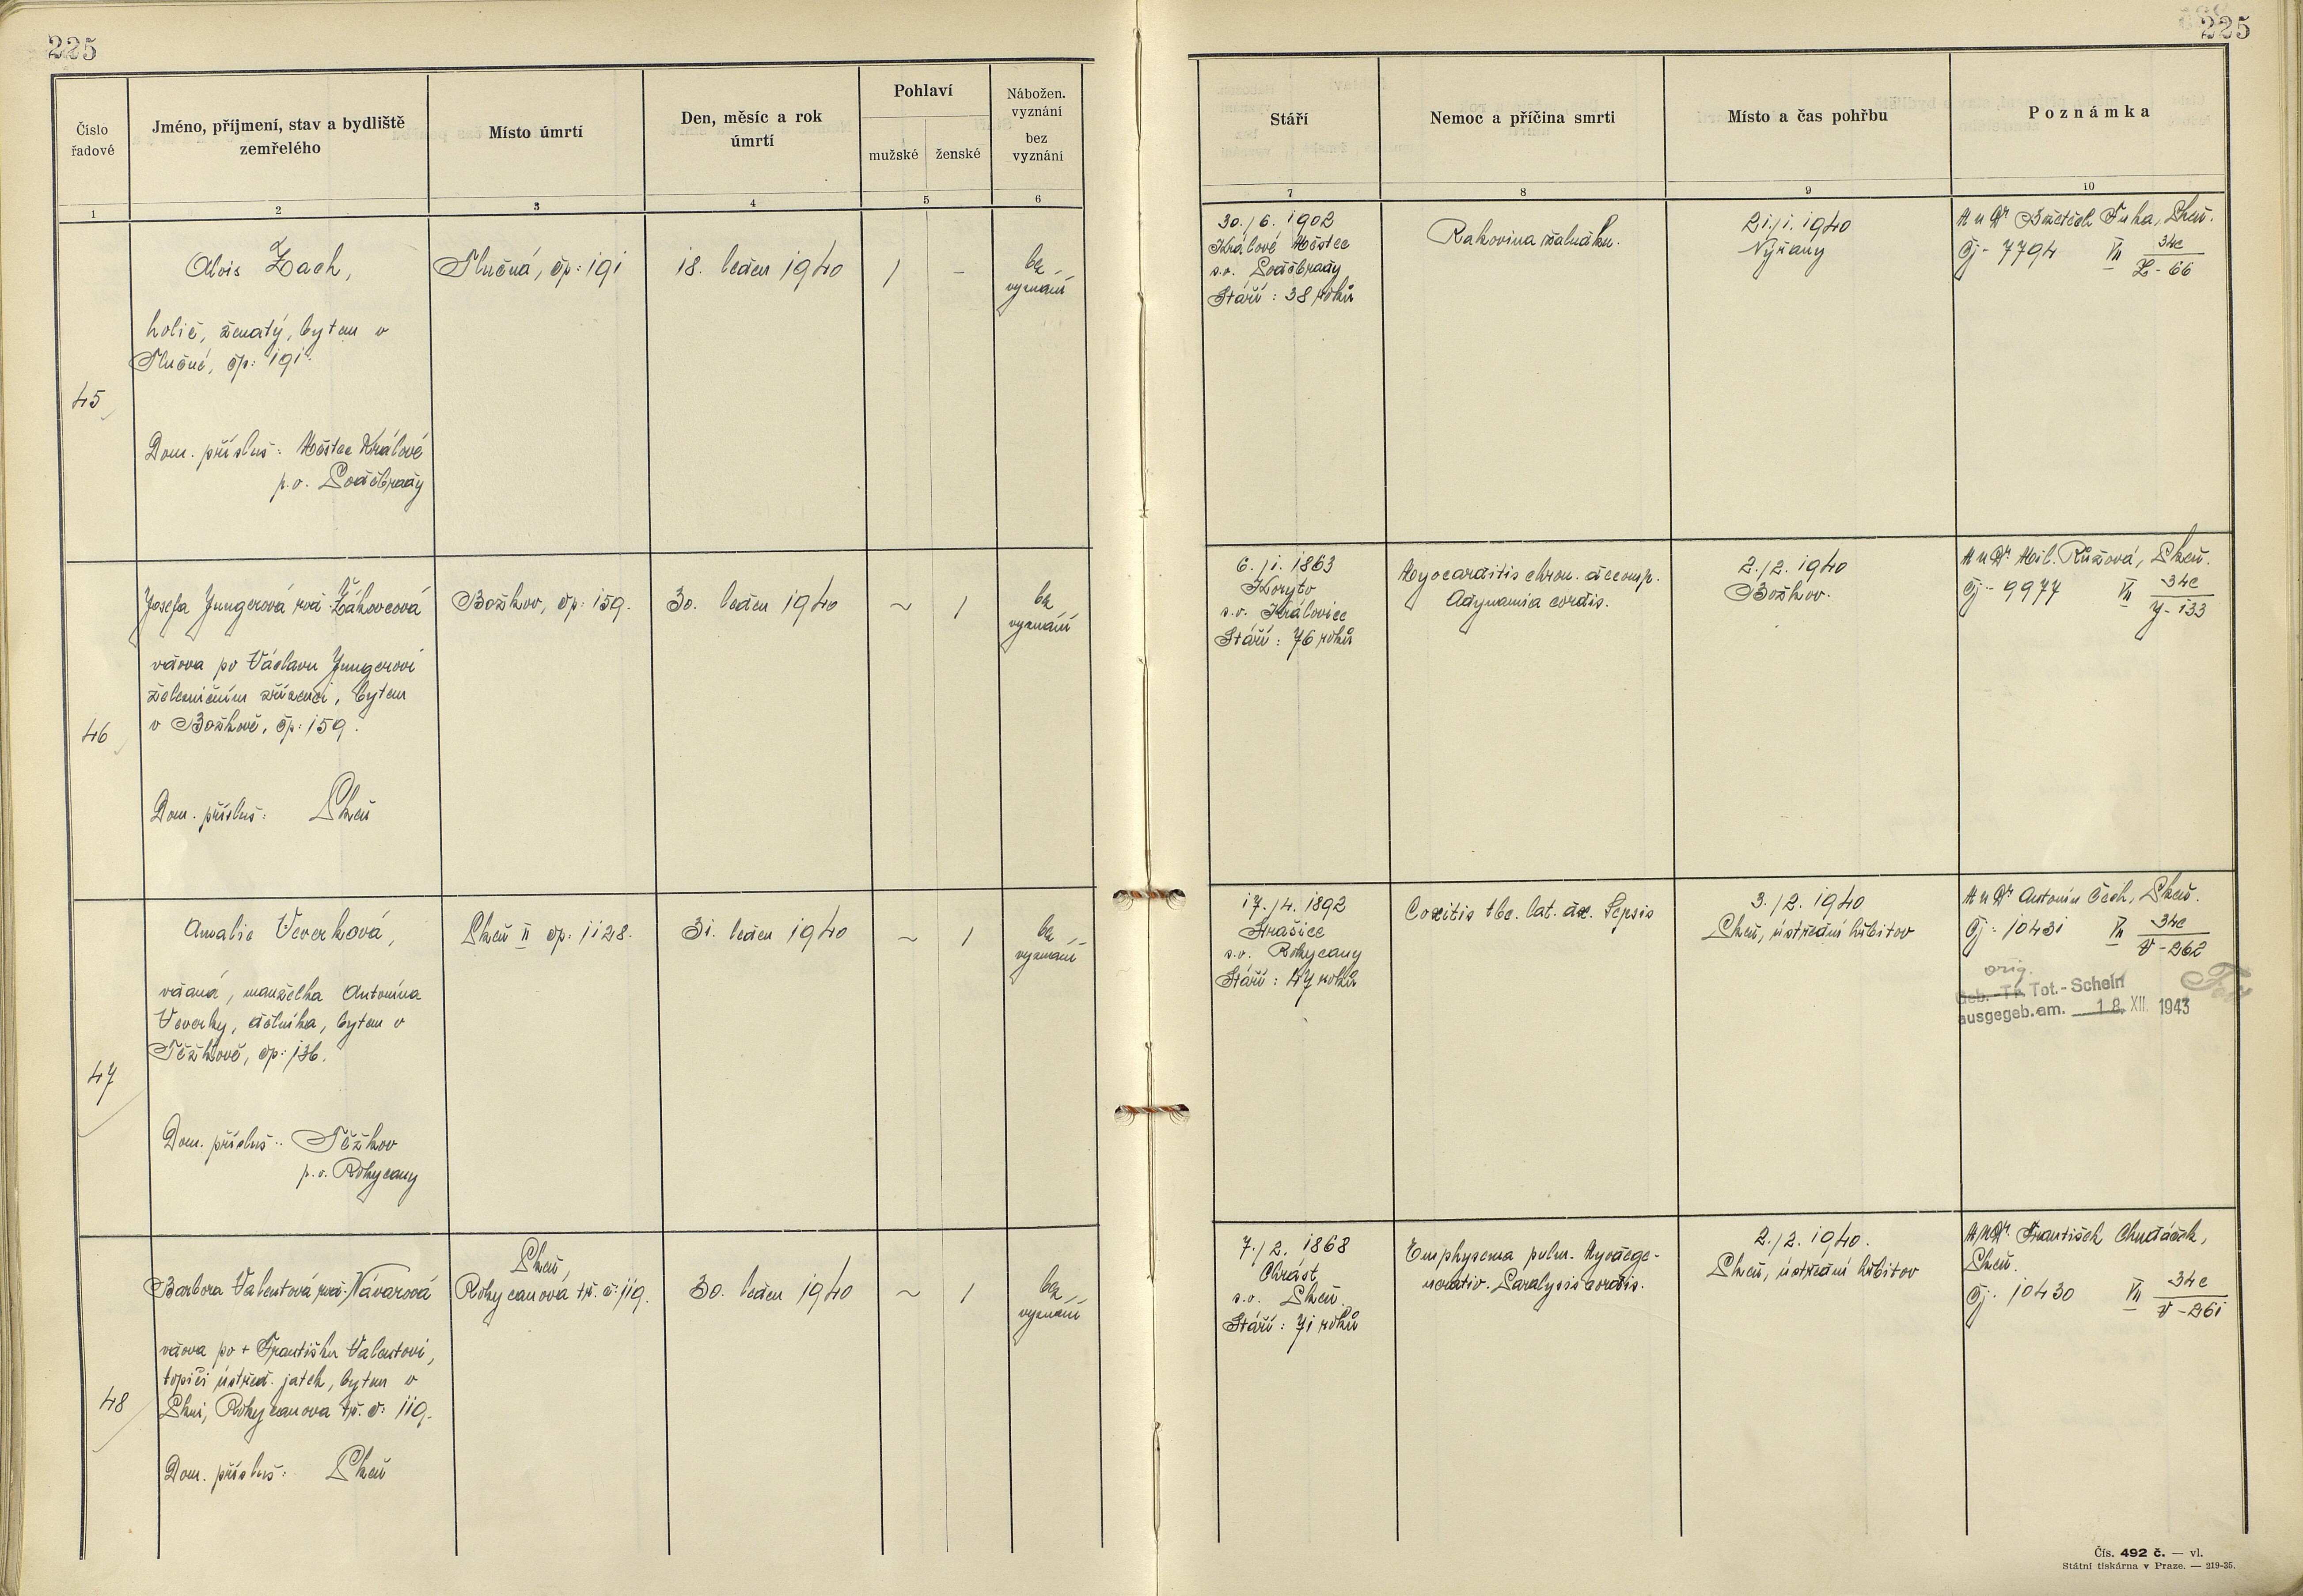 225
225
Číslo řadové
Jméno, příjmení, stav a bydliště zemřelého
Místo úmrtí
Den, měsíc a rok úmrtí
Pohlaví
mužské
ženské
Nábožen. vyznání
bez vyznání
Stáří
Nemoc a příčina smrti
Místo a čas pohřbu
Poznámka
1
2
3
4
5
6
7
8
9
10
45
Alois Zach,
holič, ženatý, bytem v
Tlučné, čp: 191.
Dom. přísluš: Městec Králové
p.o. Poděbrady
Tlučná, čp: 191
18. leden 1940
1
–
bez
vyznání
30./6. 1902
Králové Městec
s.o. Poděbrady
Stáří: 38 roků
Rakovina žaludku.
21./1. 1940
Nýřany
MuDr Bedřich Fuha, Plzeň.
Čj- 7794 VII 34c
Z - 66
46
Josefa Jungerová roz. Žákovcová
vdova po Václavu Jungerovi
železničním zřízenci, bytem
v Božkově, čp: 159.
Dom. přísluš: Plzeň
Božkov, čp: 159.
30. leden 1940
~
1
bez
vyznání
6./1. 1863
Koryto
s.o. Kralovice
Stáří: 76 roků
Myocarditis chron. decomp.
Adynamia cordis.
2./2. 1940
Božkov.
MuDr Mil. Růžová, Plzeň.
Čj- 9977 VII 34c
J - 133
47
Amalie Veverková,
vdaná, manželka Antonína
Veverky, dělníka, bytem v
Těžkově, čp: 136.
Dom. přísluš: Těžkov
p.o. Rokycany
Plzeň II čp: 1128.
31. leden 1940
~
1
bez
vyznání
17./4. 1892
Hrašice
s.o. Rokycany
Stáří: 47 roků
Coxitis tbc. lat. dx. Sepsis
3./2. 1940
Plzeň, ústřední hřbitov
MuDr Antonín Čech, Plzeň.
Čj: 10431 VII 34c
V - 262
orig.
Geb.-Tr. Tot.-Schein
ausgegeb. am. 18. XII. 1943
48
Barbora Valentová roz. Návarová
vdova po + Františku Valentovi,
topiči ústřed. jatek, bytem v
Plzni, Rokycanova tř. č: 119.
Dom. přísluš: Plzeň
Plzeň,
Rokycanova tř. č: 119.
30. leden 1940
~
1
bez
vyznání
7./2. 1868
Chrást
s.o. Plzeň.
Stáří: 71 roků
Emphysema pulm. Myodege-
nerativ. Paralysis cordis.
2./2. 1940.
Plzeň, ústřední hřbitov
MUDr František Chudáček,
Plzeň.
Čj. 10430 VII 34c
V - 261
Čís. 492 č. — vl.
Státní tiskárna v Praze. — 219-35.